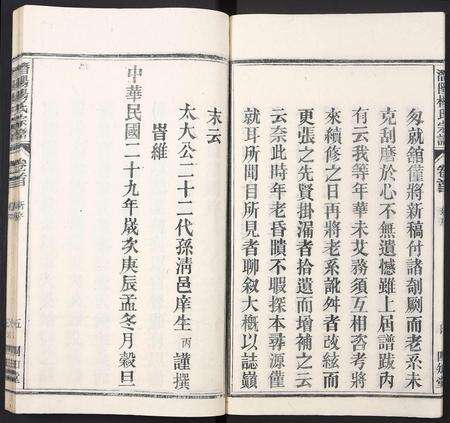 匆就舘僅將新稿付諸剞劂而老系未
克刮磨於心不無遺憾雖上屆譜跋內
有云我等年華未艾務須互相沓考將
來續修之日再將老系訛舛者改絃而
更張之先賢掛漏者拾遺而增補之云
云奈此時年老昏瞶不暇探本尋源僅
就耳所聞目所見者聊叙大槪以誌巔
末云
太大公二十二代孫淸邑庠生丙 謹撰
時維
中華民國二十九年歲次庚辰孟冬月穀旦